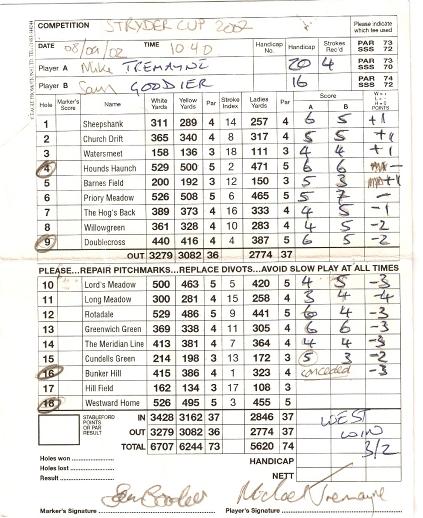 COMPETITION STRYDER CUP 2002 Please indicate which tee used
DATE 08/09/02 TIME 10 40 Handicap No. Handicap Strokes Rec'd PAR 73 SSS 72
Player A Mike TREMAYNE 20 4 PAR 73 SSS 70
Player B Sam GODDIER 16 PAR 74 SSS 72
Hole Marker's Score Name White Yards Yellow Yards Par Stroke Index Ladies Yards Par Score A B W = + L = - H = 0 POINTS
1 Sheepshank 311 289 4 14 257 4 6 5 +1
2 Church Drift 365 340 4 8 317 4 5 5 +1
3 Watersmeet 158 136 3 18 111 3 4 4 +1
4 Hounds Haunch 529 500 5 2 471 5 6 6 -
5 Barnes Field 200 192 3 12 150 3 5 3 +1
6 Priory Meadow 526 508 5 6 465 5 5 7 -
7 The Hog's Back 389 373 4 16 333 4 4 5 -1
8 Willowgreen 361 328 4 10 283 4 4 5 -2
9 Doublecross 440 416 4 4 387 5 6 5 -2
OUT 3279 3082 36 2774 37
PLEASE...REPAIR PITCHMARKS...REPLACE DIVOTS...AVOID SLOW PLAY AT ALL TIMES
10 Lord's Meadow 500 463 5 5 420 5 4 5 -3
11 Long Meadow 300 281 4 15 258 4 3 4 -4
12 Rotadale 529 486 5 9 441 5 6 4 -3
13 Greenwich Green 369 338 4 11 305 4 6 6 -3
14 The Meridian Line 413 381 4 7 364 4 4 4 -3
15 Cundells Green 214 198 3 13 172 3 5 3 -2
16 Bunker Hill 415 386 4 1 323 4 conceded -3
17 Hill Field 162 134 3 17 108 3
18 Westward Home 526 495 5 3 455 5
STABLEFORD POINTS OR PAR RESULT IN 3428 3162 37 2846 37
OUT 3279 3082 36 2774 37 WEST
TOTAL 6707 6244 73 5620 74 WIN 3/2
Holes won HANDICAP
Holes lost
Result NETT
Marker's Signature Player's Signature Michael Tremayne